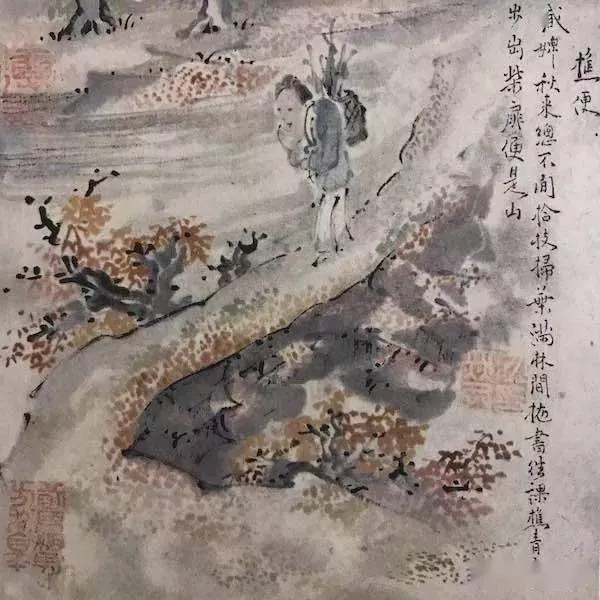 樵便
臧婢秋来總不閒拾枝掃葉滿林間抛書往課樵青
步出柴扉便是山